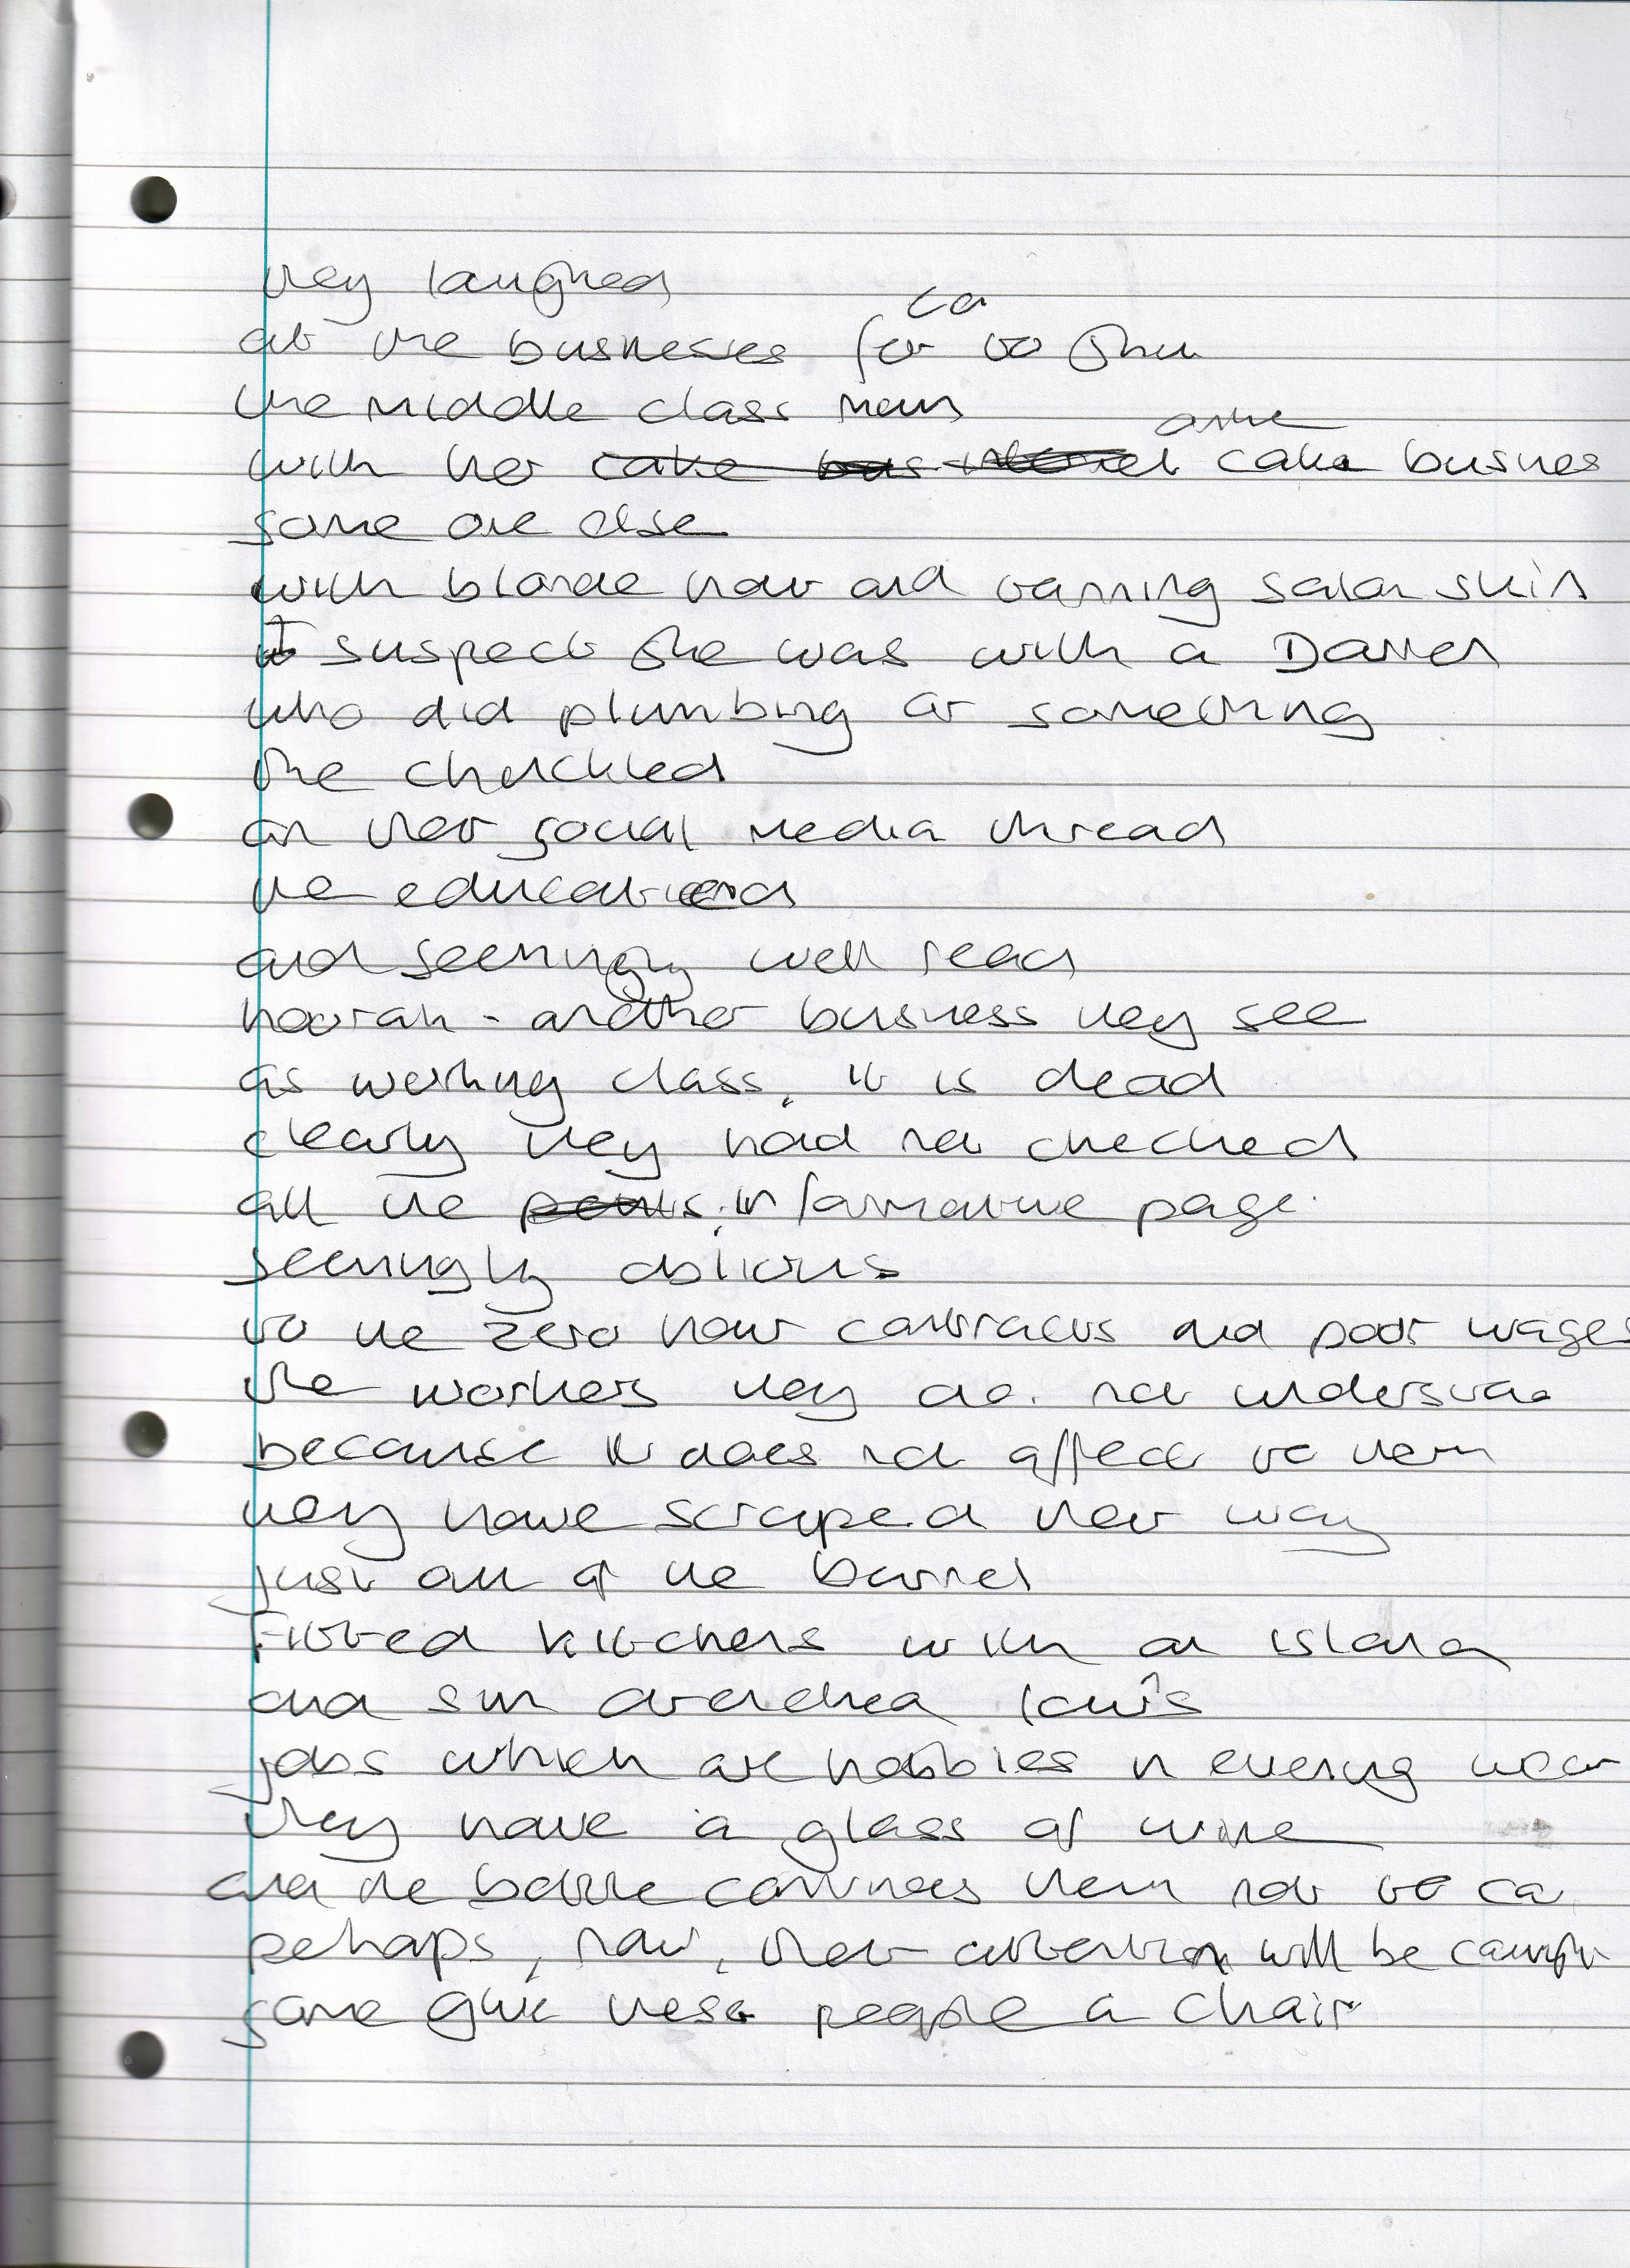 they laughed
at the businesses for to shu
the middle class mum
with her cake bus cake busines
some one else
with blonde hair and tanning salon skin
I suspect she was with a Darren
who did plumbing or something
she chuckled
on their social media thread
the educated
and seemingly well read
hoorah - another business they see
as working class, it is dead
clearly they had not checked
all the points informative page
seemingly oblivious
to the zero hour contracts and poor wages
the workers they do not understa
because it does not affect to them
they have scraped their way
just out of the barrel
Fitted kitchens with an island
and sun drenched
jobs which are hobbies in evening wear
they have a glass of wine
and the bottle convinces them not to ca
perhaps, now, their attention will be caught
some give these people a chair